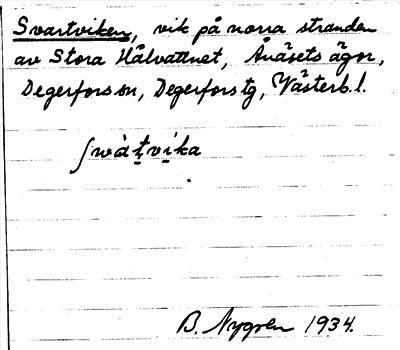 Svartviken, vik på norra stranden
av Stora Hålvattnet, Ånäsets ägor,
Degerfors sn, Degerfors tg, Västerb. l.
ʃwàt̩vika
B. Nygren 1934.